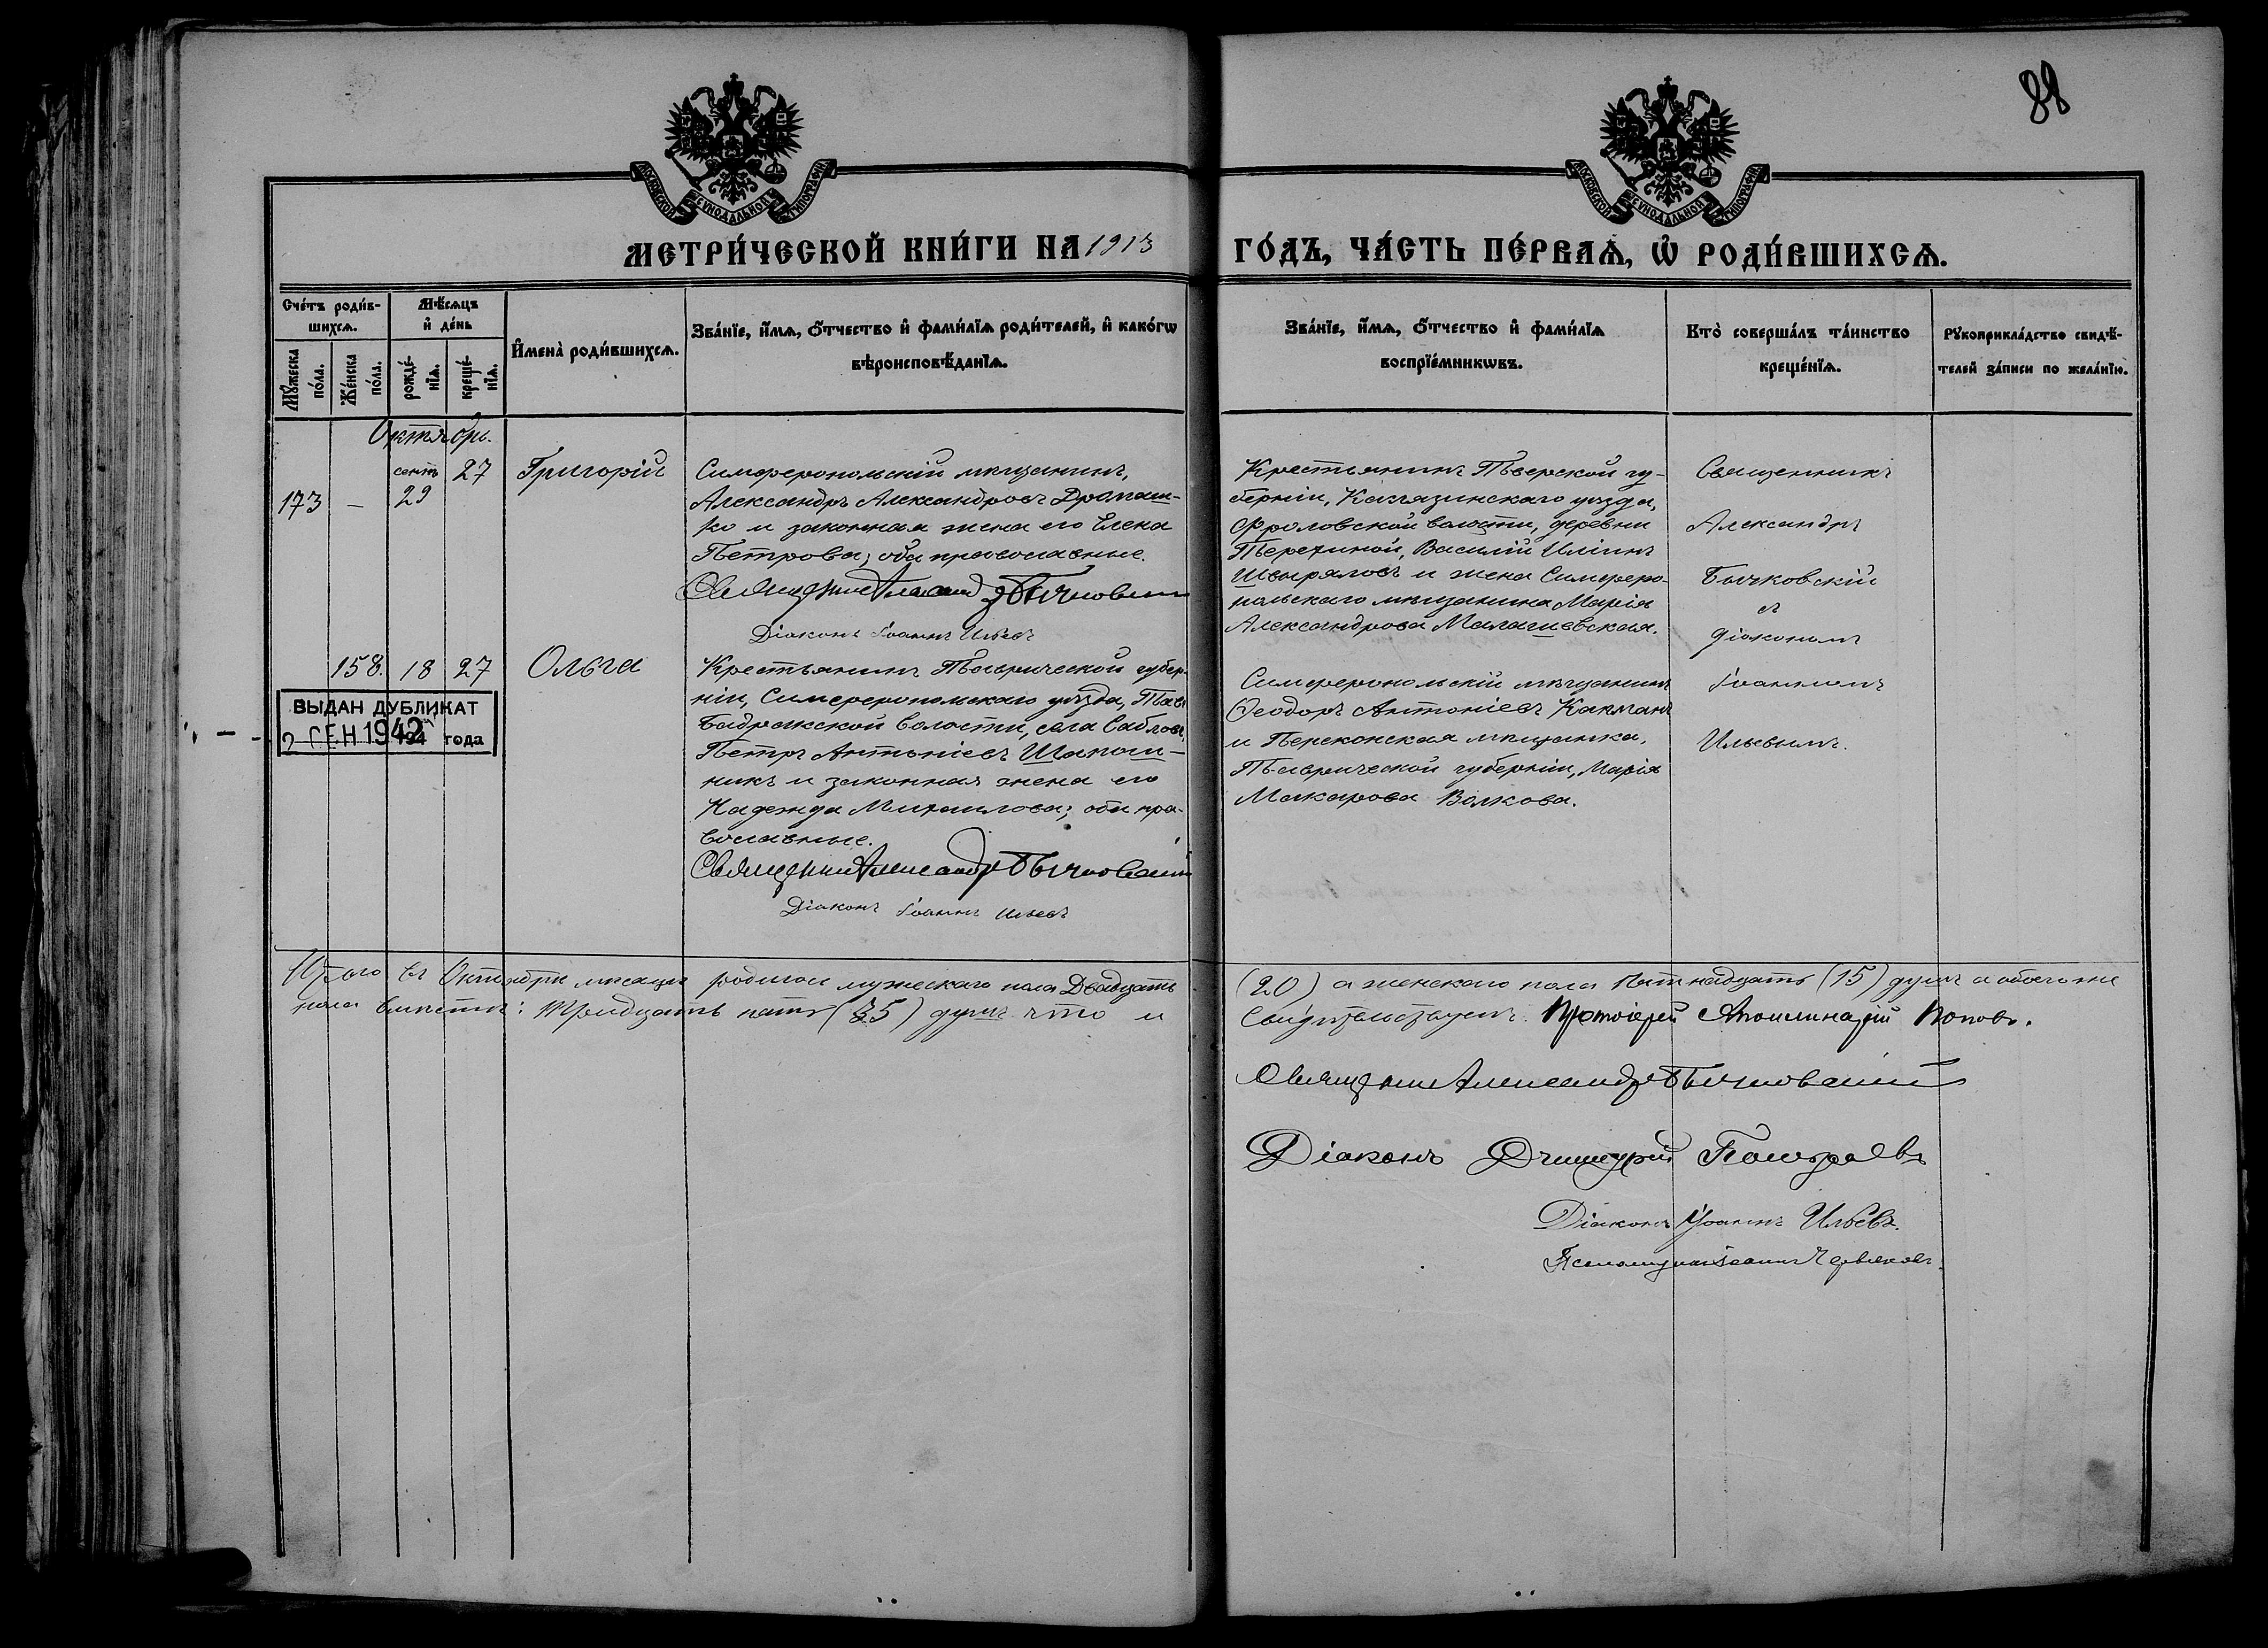 88
МОСКОВСКОЙ СУНОДАЛЬНОЙ ТИПОГРАФІИ
МОСКОВСКОЙ СУНОДАЛЬНОЙ ТИПОГРАФІИ
МЕТРИ́ЧЕСКОЙ КНИ́ГИ НА 1913
ГО́ДЪ, ЧА́СТЬ ПЕ́РВАѦ, Ѡ҆ РОДИ́ВШИХСѦ.
Сче́тъ роди́в-
шихсѧ.
Мꙋ́жеска по́ла.
Же́нска по́ла.
Мѣ́сѧцъ
и҆ де́нь
рожде́-нїѧ.
креще́-нїѧ.
И҆мена̀ роди́вшихсѧ.
Зва́нїе, и҆́мѧ, ѻ҆́тчество и҆ фами́лїѧ роди́телей, и҆ како́гѡ
вѣроисповѣ́данїѧ.
Зва́нїе, и҆́мѧ, ѻ҆́тчество и҆ фами́лїѧ
воспрїе́мникѡвъ.
Кто̀ соверша́лъ та́инство
креще́нїѧ.
Рꙋкоприкла́дство свидѣ́-
телей за́писи по жела́нїю.
Октябрь.
173 — сент. 29 27 Григорій
Симферопольскій мѣщанинъ,
Александръ Александровъ Дромаш-
ко и законная жена его Елена
Петрова; оба православные.
Священникъ Александръ Бычковскій
Діаконъ Іоаннъ Ильевъ
Крестьянинъ Тверской гу-
берніи, Калязинскаго уѣзда,
Фроловской волости, деревни
Василій Ильинъ
Швыряловъ и жена Симферо-
польскаго мѣщанина Марія
Александрова Малашевская.
Священникъ
Александръ
Бычковскій
съ
діакономъ
Іоанномъ
Ильевымъ.
158. 18 27 Ольга
Крестьянинъ Таврической губер-
ніи, Симферопольскаго уѣзда, Тав-
Бадракской волости, села Сабловъ,
Петръ Антоніевъ Шапош-
никъ и законная жена его
Надежда Михаилова; оба пра-
вославные.
Священникъ Александръ Бычковскій
Діаконъ Іоаннъ Ильевъ
Симферопольскій мѣщанинъ
Ѳеодоръ Антоніевъ Какманъ
и Перекопская мѣщанка,
Таврической губерніи, Марія
Макарова Волкова.
ВЫДАН ДУБЛИКАТ
2 СЕН 1942 194 года
Итого въ Октябрѣ мѣсяцѣ родилось мужескаго пола Двадцать
(20) а женскаго пола Пятнадцать (15) душъ а обоего же
пола вмѣстѣ: Тридцать пять (35) душъ что и
свидѣтельствуетъ. Протоіерей Аполлинарій Поповъ.
Священникъ Александръ Бычковскій
Діаконъ Дмитрій
Діаконъ Іоаннъ Ильевъ.
Псаломщикъ Іоаннъ Червяковъ.